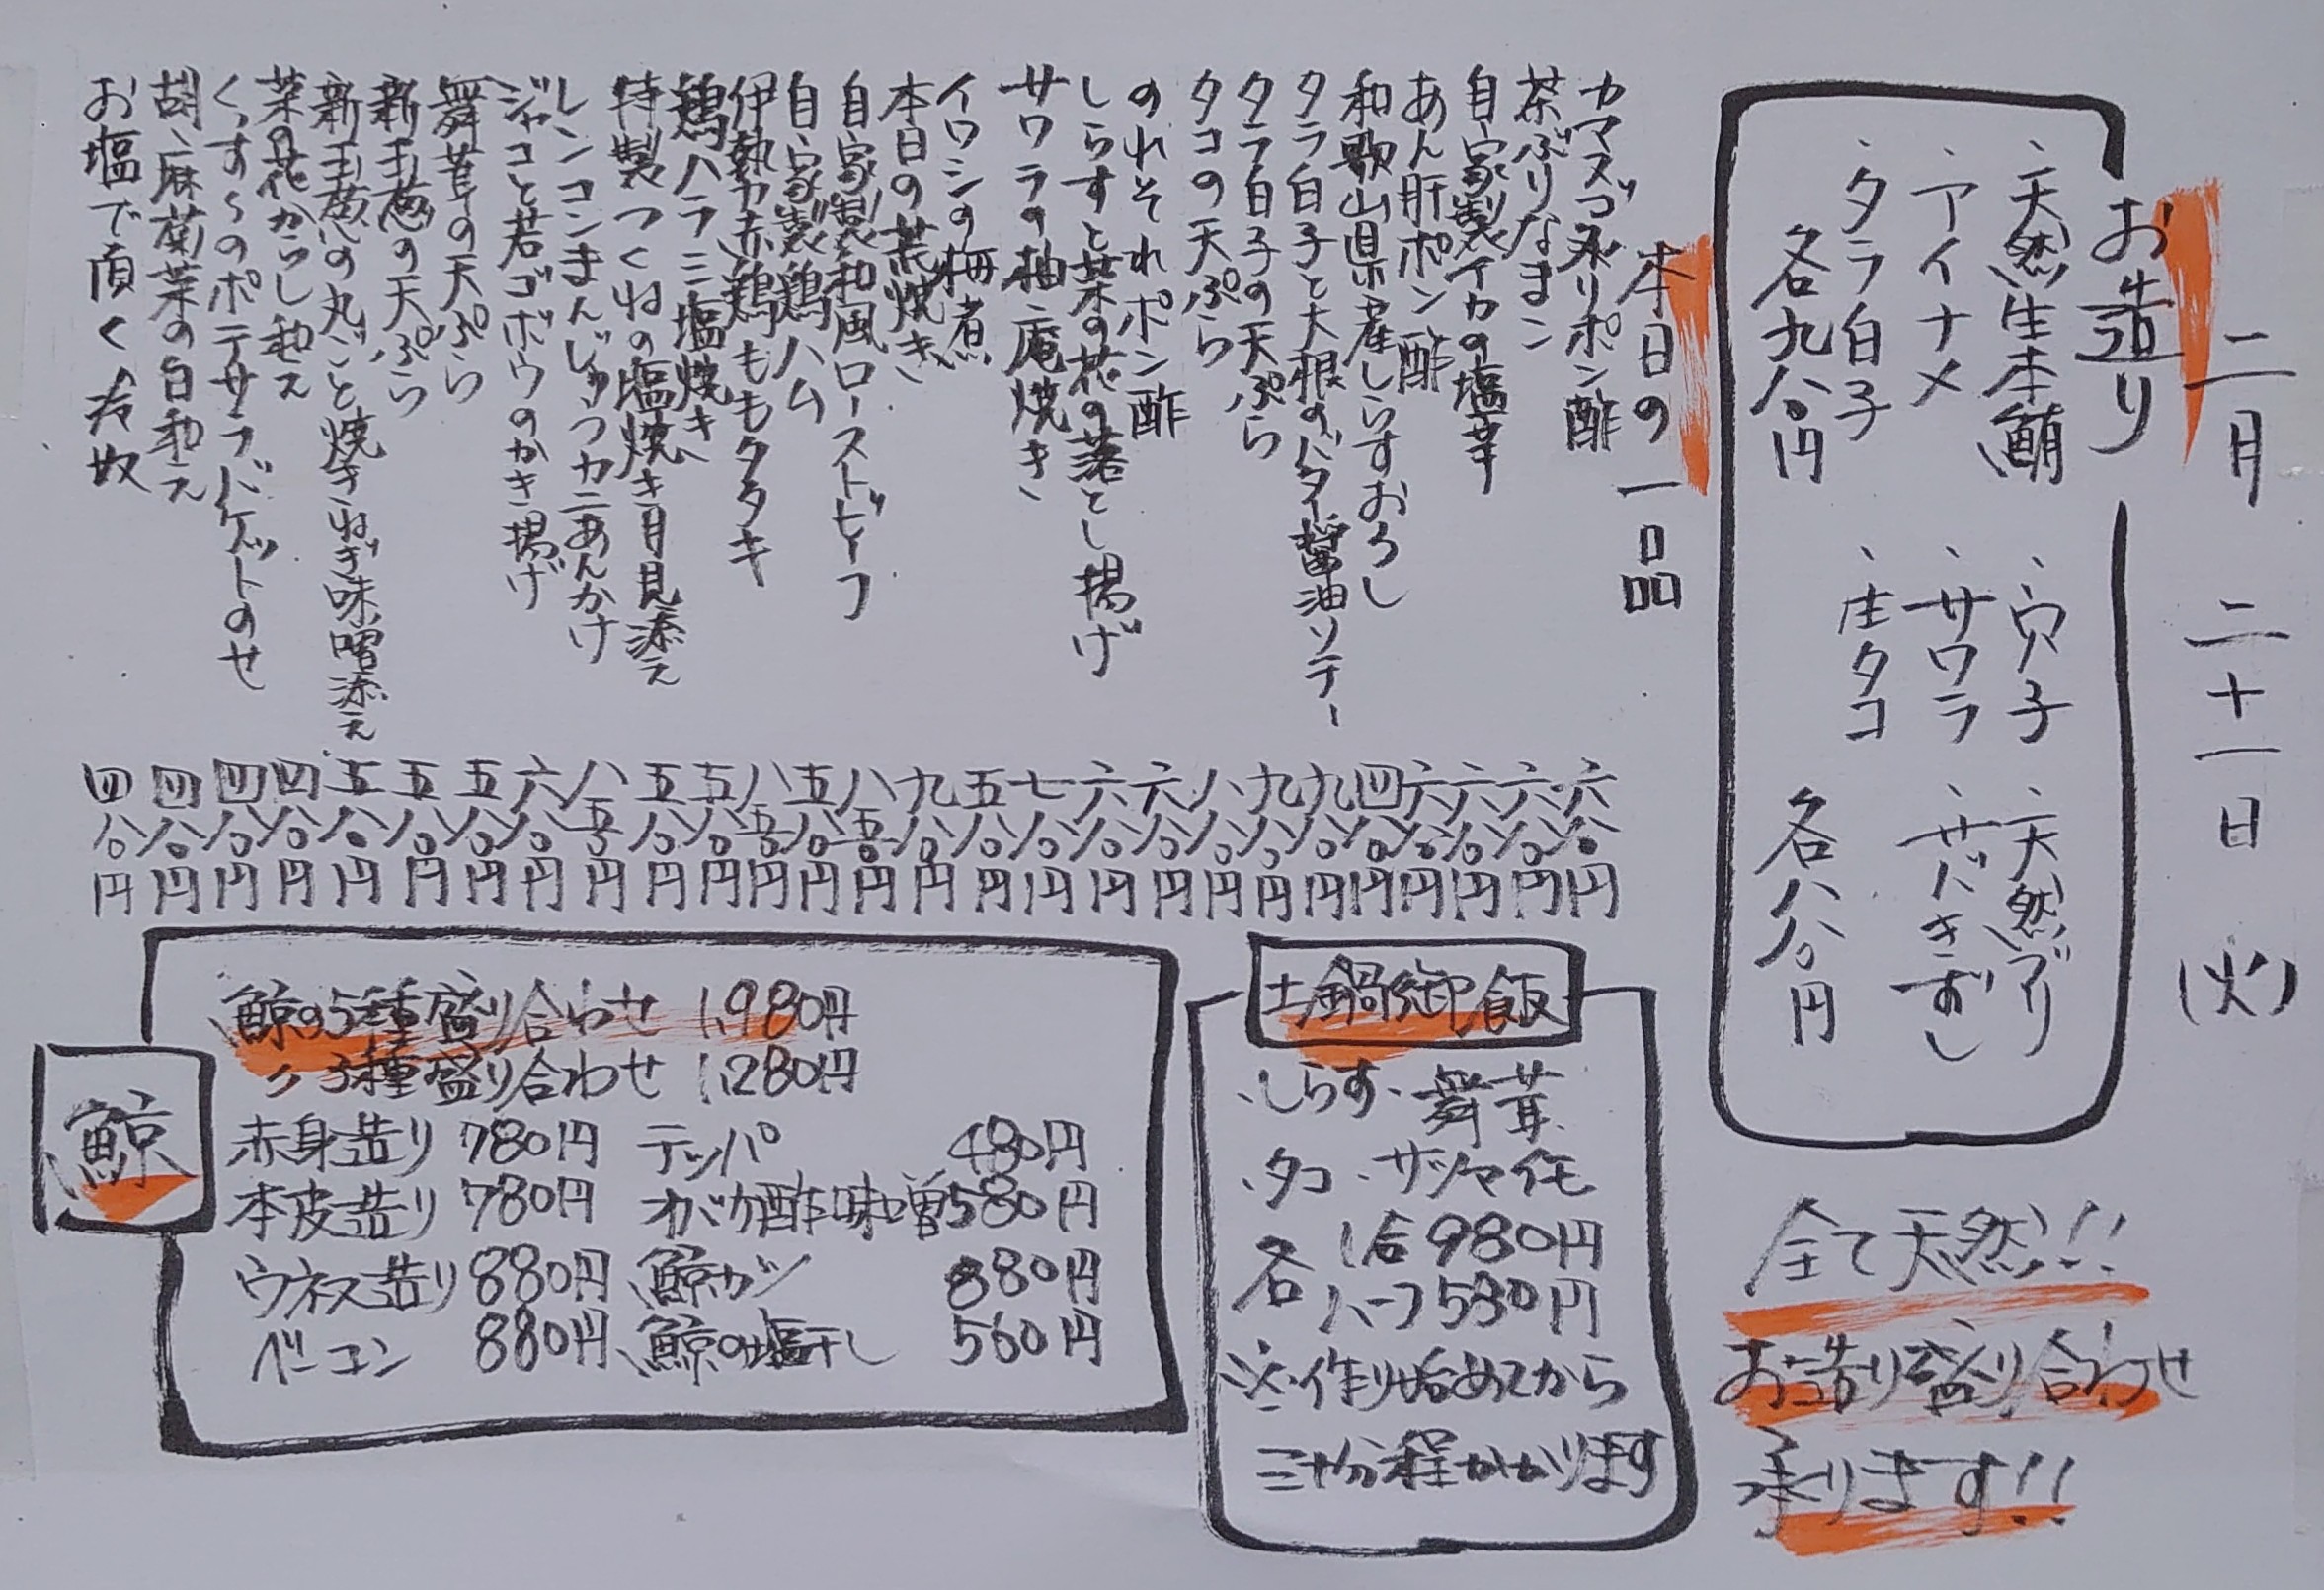 二月二十一日(火)
お造り
・天然生本鮪 ・穴子 ・天然ブリ
・アイナメ ・サワラ ・サバきずし
・タラ白子 ・生タコ
各九八〇円 各八八〇円
本日の一品
カマスゴ炙りポン酢 六八〇円
茶ぶりなまこ 六八〇円
自家製イカの塩辛 六八〇円
あん肝ポン酢 六八〇円
和歌山県産しらすおろし 四八〇円
タラ白子と大根のバター醤油ソテー 九八〇円
タラ白子の天ぷら 九八〇円
タコの天ぷら 八八〇円
のれそれポン酢 六八〇円
しらすと菜の花の落とし揚げ 六八〇円
サワラの柚庵焼き 七八〇円
イワシの梅煮 五八〇円
本日の荒焼き 九八〇円
自家製和風ローストビーフ 八五〇円
自家製鶏ハム 五八〇円
伊勢赤鶏ももタタキ 八五〇円
鶏ハラミ塩焼き 五八〇円
特製つくねの塩焼き月見添え 五八〇円
レンコンまんじゅうカニあんかけ 八五〇円
ジャコと若ゴボウのかき揚げ 六八〇円
舞茸の天ぷら 五八〇円
新玉葱の天ぷら 五八〇円
新玉葱の丸ごと焼きねぎ味噌添え 五八〇円
菜の花からし和え 四八〇円
くっす〜のポテサラバゲットのせ 四八〇円
胡麻菊菜の白和え 四八〇円
お塩で頂く冷奴 四八〇円
全て天然!!
お造り盛り合わせ
承ります!!
土鍋御飯
・しらす ・舞茸
・タコ ・サツマイモ
各 1合980円
ハーフ580円
※作り始めてから
三十分程かかります
鯨
鯨の5種盛り合わせ 1,980円
〃 3種盛り合わせ 1,280円
赤身造り 780円 テッパ 480円
本皮造り 780円 オバケ酢味噌 580円
ウネス造り 880円 鯨カツ 880円
ベーコン 880円 鯨の塩干し 560円